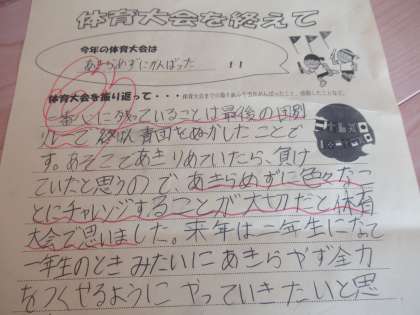 体育大会を終えて
今年の体育大会は
あきらめずにがんばった !!
体育大会を振り返って・・・
一番心に残っていることは最後の団別
リレーで 青団をぬかしたことで
す。あそこであきらめていたら、負け
ていたと思うので、あきらめずに色々なこ
とにチャレンジすることが大切だと体育
大会で思いました。来年は二年生になって
一年生のときみたいにあきらめず全力
をつくせるように やっていきたいと思